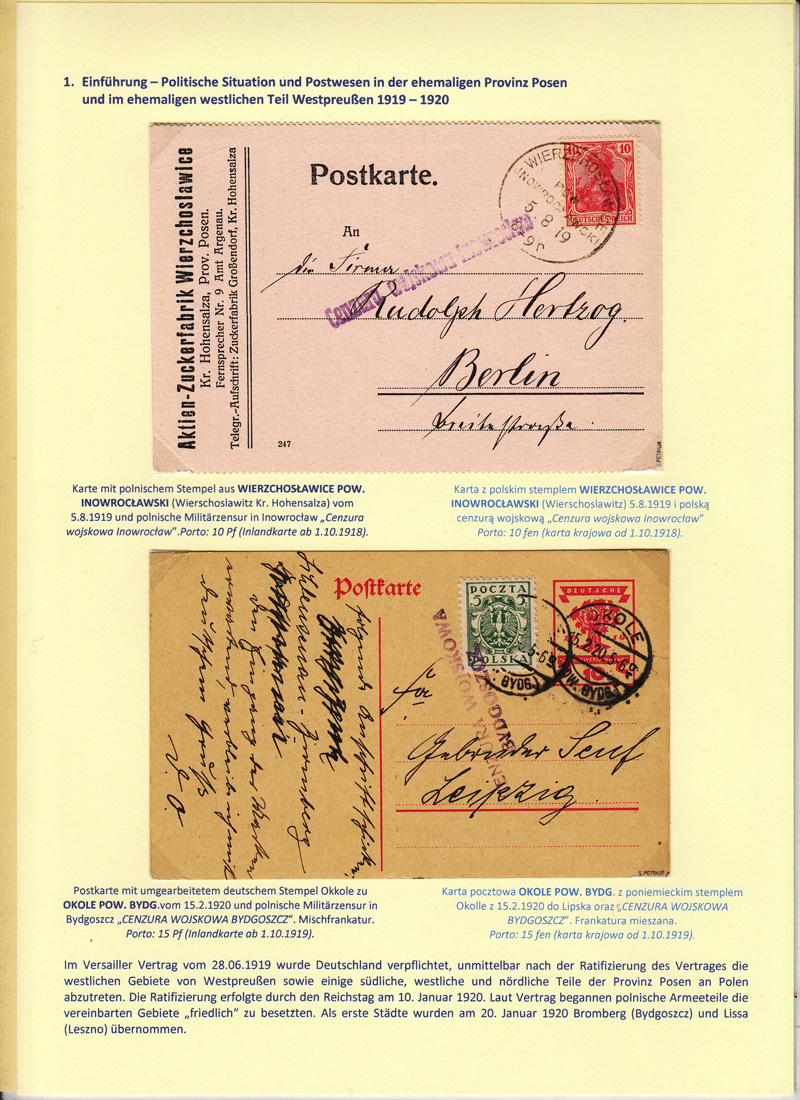 1. Einführung – Politische Situation und Postwesen in der ehemaligen Provinz Posen
und im ehemaligen westlichen Teil Westpreußen 1919 – 1920
Aktien-Zuckerfabrik Wierzchoslawice
Kr. Hohensalza, Prov. Posen.
Fernsprecher Nr. 9 Amt Argenau.
Telegr.-Aufschrift: Zuckerfabrik Großendorf, Kr. Hohensalza
Postkarte.
WIERZCHOSŁAWICE
POW.
INOWROCŁAWSKI
5.8.19
10
DEUTSCHES REICH
An
Cenzura wojskowa Inowrocław
die Firma
Rudolph Hertzog.
Berlin
Breitestraße.
247
S.PETRIUK
Karte mit polnischem Stempel aus WIERZCHOSŁAWICE POW.
INOWROCŁAWSKI (Wierschoslawitz Kr. Hohensalza) vom
5.8.1919 und polnische Militärzensur in Inowrocław „Cenzura
wojskowa Inowrocław".Porto: 10 Pf (Inlandkarte ab 1.10.1918).
Karta z polskim stemplem WIERZCHOSŁAWICE POW.
INOWROCŁAWSKI (Wierschoslawitz) 5.8.1919 i polską
cenzurą wojskową „Cenzura wojskowa Inowrocław"
Porto: 10 fen (karta krajowa od 1.10.1918).
Postkarte
POCZTA
5 5
POLSKA
DEUTSCHE
10
OKOLE
15.2.20.5-6N
(POW. BYDG.)
CENZURA WOJSKOWA
BYDGOSZCZ
Fa
Gebrüder Senf
Leipzig.
S.PETRIUK
Postkarte mit umgearbeitetem deutschem Stempel Okkole zu
OKOLE POW. BYDG.vom 15.2.1920 und polnische Militärzensur in
Bydgoszcz „CENZURA WOJSKOWA BYDGOSZCZ". Mischfrankatur.
Porto: 15 Pf (Inlandkarte ab 1.10.1919).
Karta pocztowa OKOLE POW. BYDG. z poniemieckim stemplem
Okolle z 15.2.1920 do Lipska oraz „CENZURA WOJSKOWA
BYDGOSZCZ". Frankatura mieszana.
Porto: 15 fen (karta krajowa od 1.10.1919).
Im Versailler Vertrag vom 28.06.1919 wurde Deutschland verpflichtet, unmittelbar nach der Ratifizierung des Vertrages die
westlichen Gebiete von Westpreußen sowie einige südliche, westliche und nördliche Teile der Provinz Posen an Polen
abzutreten. Die Ratifizierung erfolgte durch den Reichstag am 10. Januar 1920. Laut Vertrag begannen polnische Armeeteile die
vereinbarten Gebiete „friedlich" zu besetzten. Als erste Städte wurden am 20. Januar 1920 Bromberg (Bydgoszcz) und Lissa
(Leszno) übernommen.